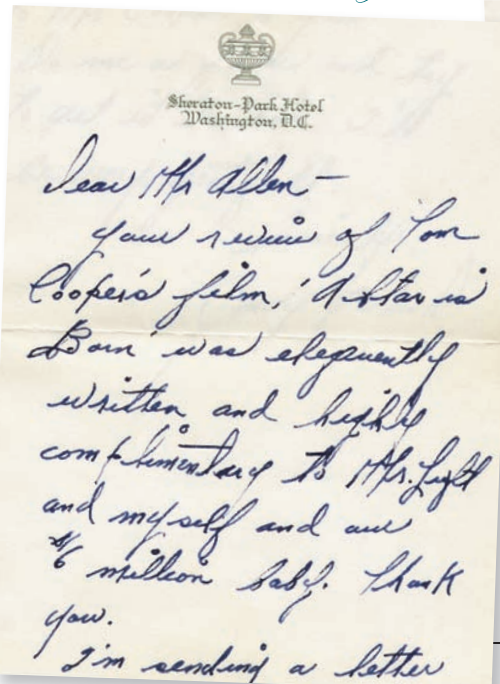 Sheraton-Park Hotel
Washington, D.C.
Dear Mr Allen—
your review of Tom
Cooper's film, 'A Star is
Born' was eloquently
written and highly
complimentary to Mr. Luft
and myself and our
$6 million baby. Thank
you.
I'm sending a letter